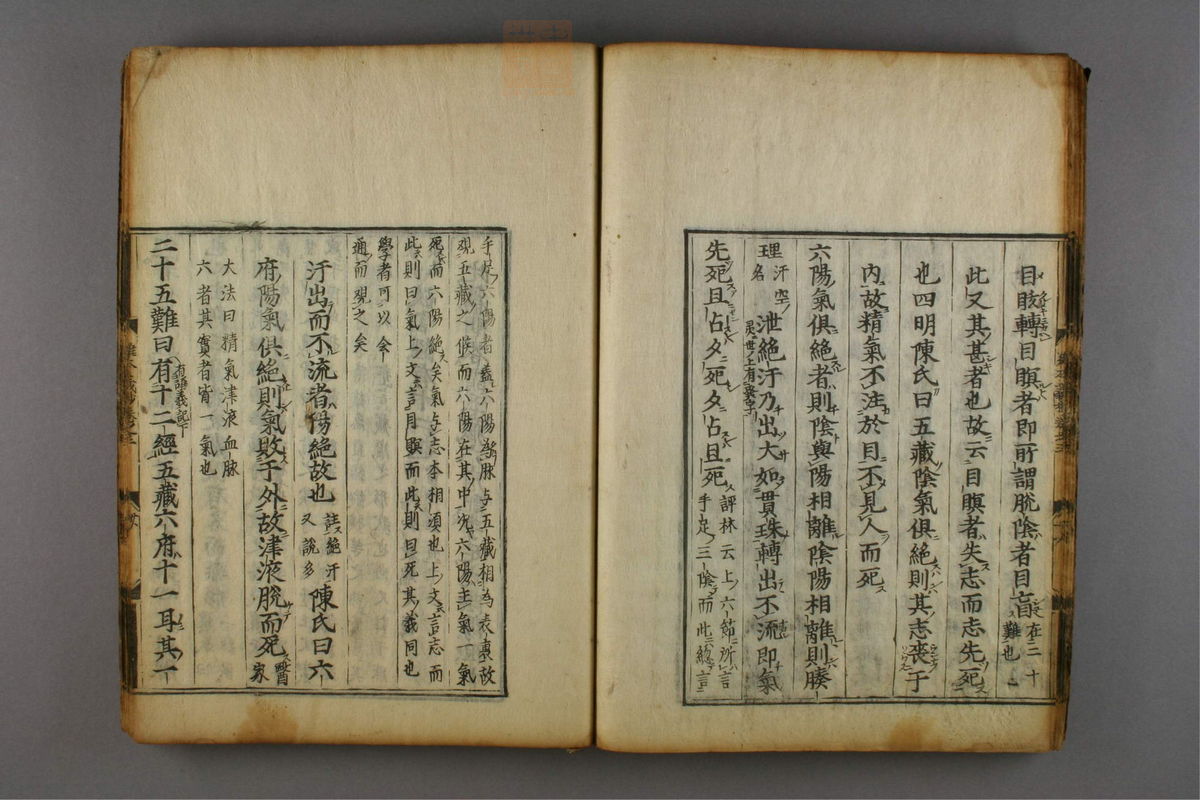 目眩轉目瞑者即所謂脱陰者目盲在三十難也
此又其甚者也故云目瞑者失志而志先死
也四明陳氏曰五藏陰氣俱絶則其志喪于
内故精氣不注於目不見人而死
六陽氣俱絶者則陰與陽相離陰陽相離則腠
理汗空名泄絶汗乃出大如貫珠轉出不流即氣
先死旦占夕死夕占旦死評林云上六節所言
手足三陰而此總言
手足六陽者蓋六陽為脉与五藏相為表裏故
現五藏之候而六陽在其中况六陽主氣一氣
死而六陽絶矣氣与志本相須也上文言志而
此則曰氣上文言目瞑而此則曰死其義同也
學者可以
通而观之矣
汗出而不流者陽絶故也註絶汗又説多陳氏曰六
府陽氣俱絶則氣敗于外故津液脱而死醫家
大法曰精氣津液血脉
六者其實者皆一氣也
二十五難曰有十二經五藏六府十一耳其一